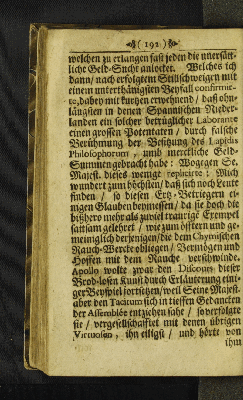 ( 192 )
welchen zu erlangen fast jeden die unersätt-
liche Geld-Sucht anlocket. Welches ich
dann / nach erfolgtem Stillschweigen mit
einem unterthänigsten Beyfall confirmir-
te, dabey mit kurtzen erwehnend / daß ohn-
längsten in denen Spannischen Nieder-
landen ein solcher betrüglicher Laborante
einen grossen Potentaten / durch falsche
Berühmung der Besitzung des Lapidis
Philosophorum, umb merckliche Geld-
Summen gebracht habe: Wogegen Se.
Majest. dieses wenige replicirte: Mich
wundert zum höchsten / daß sich noch Leute
finden / so diesen Ertz-Betriegern ei-
nigen Glauben beymessen / da sie doch die
bißhero mehr als zuviel traurige Exempel
sattsam gelehret / wie zum öfftern und ge-
meiniglich derjenigen / die dem Chymischen
Rauch-Wercke obliegen / Vermögen und
Hoffen mit dem Rauche verschwinde.
Apollo wolte zwar den Discours dieser
Brod-losen Kunst durch Erläuterung eini-
ger Beyspiel fortsetzen / weil Seine Majest.
aber den Tacitum sich in tieffen Gedancken
der Assemblée entziehen sahe / so verfolgte
sie / vergesellschafftet mit denen übrigen
Virtuosen, ihn eiligst / und hörte von
ihm